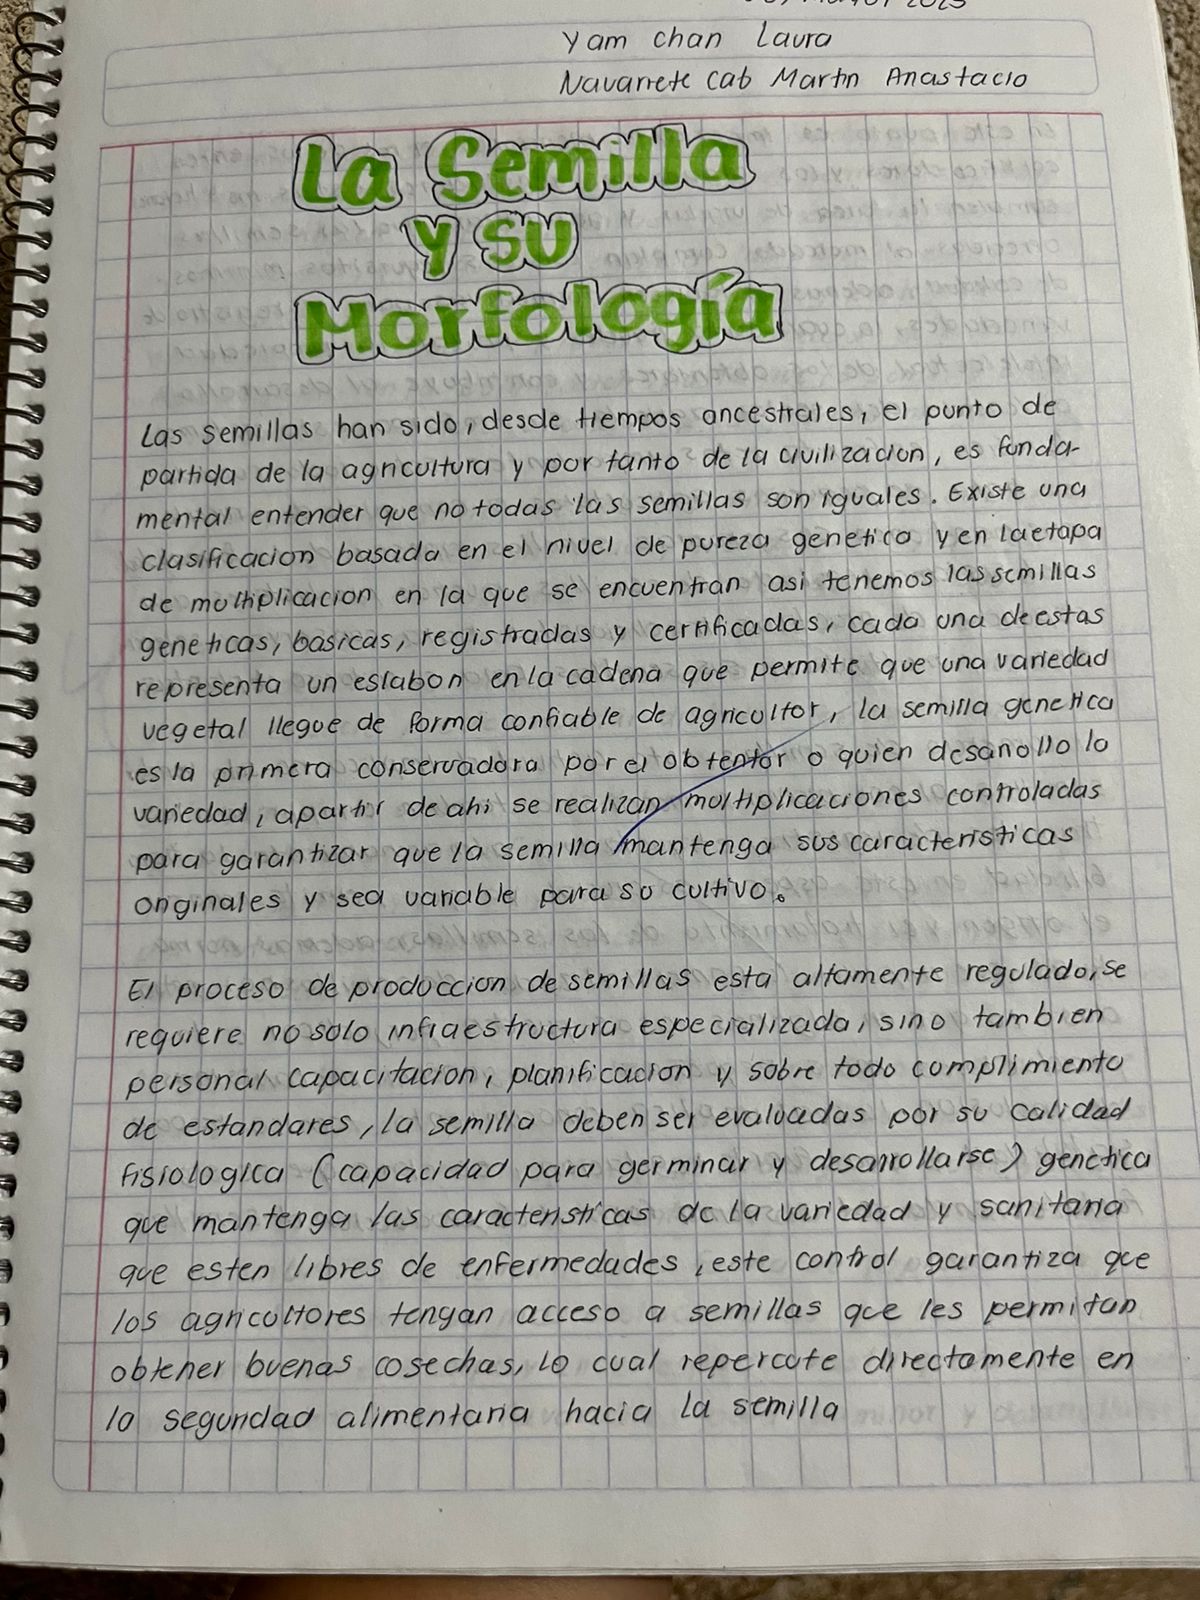 2025
Yam Chan Laura
Navarrete Cab Martin Anastacio
La Semilla
y su
Morfología
Las semillas han sido, desde tiempos ancestrales, el punto de
partida de la agricultura y por tanto de la civilizacion, es funda-
mental entender que no todas las semillas son iguales. Existe una
clasificacion basada en el nivel de pureza genetica y en la etapa
de multiplicacion en la que se encuentran asi tenemos las semillas
geneticas, basicas, registradas y certificadas, cada una de estas
representa un eslabon en la cadena que permite que una variedad
vegetal llegue de forma confiable de agricultor, la semilla genetica
es la primera conservadora por el obtentor o quien desarrollo lo
variedad, apartir de ahi se realizan multiplicaciones controladas
para garantizar que la semilla mantenga sus caracteristicas
originales y sea variable para su cultivo.
El proceso de produccion de semillas esta altamente regulado, se
requiere no solo infraestructura especializada, sino tambien
personal capacitacion, planificacion y sobre todo complimiento
de estandares, la semilla deben ser evaluadas por su calidad
fisiologica (capacidad para germinar y desarrollarse) genetica
que mantenga las caracteristicas de la variedad y sanitaria
que esten libres de enfermedades, este control garantiza que
los agricultores tengan acceso a semillas que les permitan
obtener buenas cosechas, lo cual repercute directamente en
la seguridad alimentaria hacia la semilla